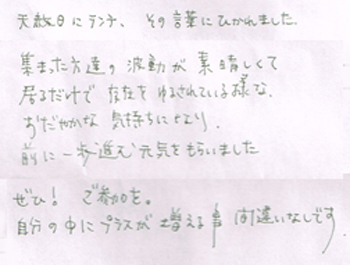 天赦日にランチ、その言葉にひかれました。
集まった方達の波動が素晴しくて
居るだけで存在をゆるされている様な、
おだやかな気持ちになり、
前に一歩進む元気をもらいました
ぜひ！ご参加を。
自分の中にプラスが増える事間違いなしです